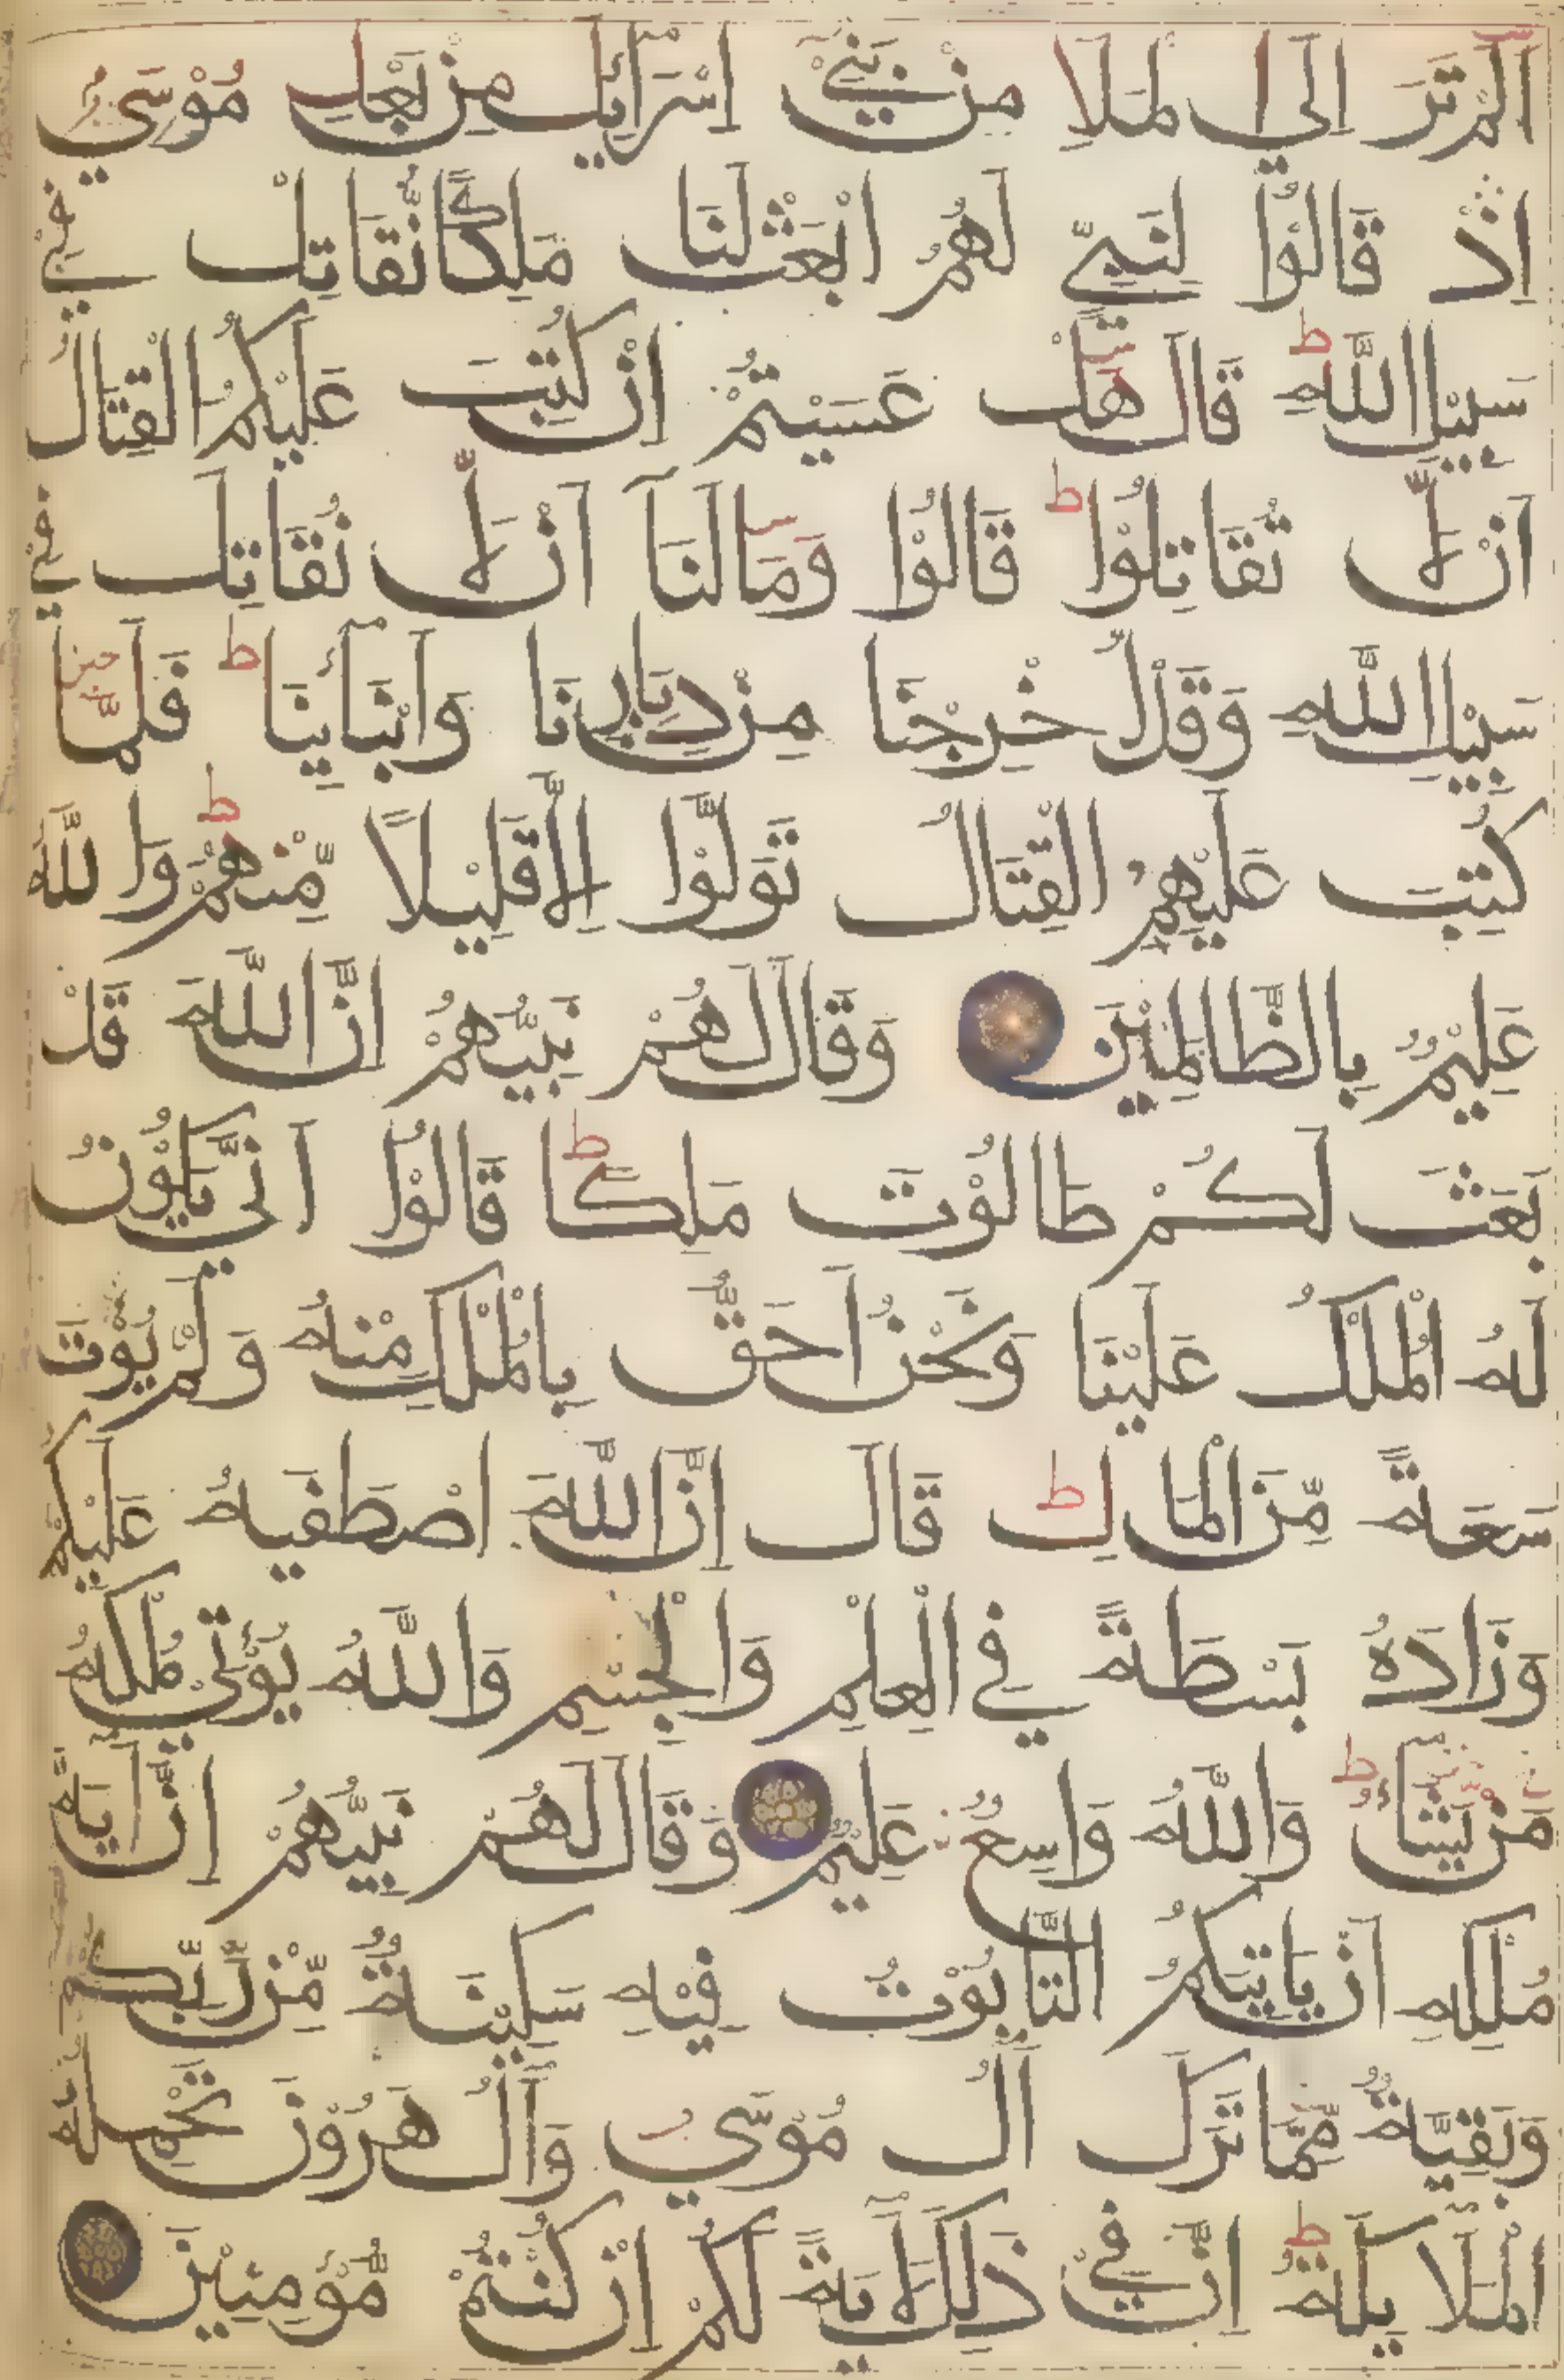 اَلَمْ تَرَ اِلَي الْمَلَاِ مِنْ بَنِيْٓ اِسْرَآئِيلَ مِنْ بَعْدِ مُوْسَيٰ
اِذْ قَالُوْا لِنَبِيٍّ لَهُمُ ابْعَثْ لَنَا مَلِكًا نُقَاتِلْ فِيْ
سَبِيْلِ اللّٰهِ ط قَالَ هَلْ عَسَيْتُمْ اِنْ كُتِبَ عَلَيْكُمُ الْقِتَالُ
اَنْ لَّا تُقَاتِلُوْا ط قَالُوْا وَمَا لَنَآ اَنْ لَّا نُقَاتِلَ فِيْ
سَبِيْلِ اللّٰهِ وَقَدْ اُخْرِجْنَا مِنْ دِيَارِنَا وَاَبْنَآئِنَا ط فَلَمَّا
كُتِبَ عَلَيْهِمُ الْقِتَالُ تَوَلَّوْا اِلَّا قَلِيْلًا مِّنْهُمْ ط وَاللّٰهُ
عَلِيْمٌ بِالظَّالِمِيْنَ وَقَالَ لَهُمْ نَبِيُّهُمْ اِنَّ اللّٰهَ قَدْ
بَعَثَ لَكُمْ طَالُوْتَ مَلِكًا ط قَالُوْا اَنّٰي يَكُوْنُ
لَهُ الْمُلْكُ عَلَيْنَا وَنَحْنُ اَحَقُّ بِالْمُلْكِ مِنْهُ وَلَمْ يُؤْتَ
سَعَةً مِّنَ الْمَالِ ط قَالَ اِنَّ اللّٰهَ اصْطَفٰيهُ عَلَيْكُمْ
وَزَادَهُ بَسْطَةً فِي الْعِلْمِ وَالْجِسْمِ وَاللّٰهُ يُؤْتِيْ مُلْكَهُ
مَنْ يَشَآءُ ط وَاللّٰهُ وَاسِعٌ عَلِيْمٌ وَقَالَ لَهُمْ نَبِيُّهُمْ اِنَّ اٰيَةَ
مُلْكِهِ اَنْ يَاتِيَكُمُ التَّابُوْتُ فِيْهِ سَكِيْنَةٌ مِّنْ رَّبِّكُمْ
وَبَقِيَّةٌ مِّمَّا تَرَكَ اٰلُ مُوْسَيٰ وَاٰلُ هٰرُوْنَ تَحْمِلُهُ
الْمَلَآئِكَةُ ط اِنَّ فِيْ ذٰلِكَ لَاٰيَةً لَكُمْ اِنْ كُنْتُمْ مُّؤْمِنِيْنَ